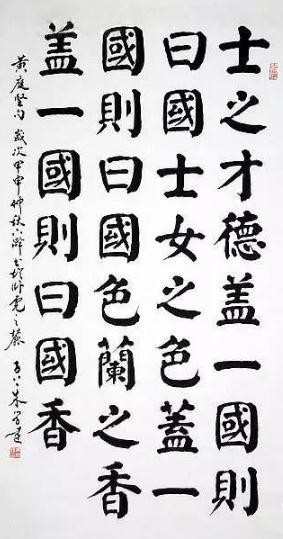 士之才德盖一國則
曰國士女之色蓋一
國則曰國色蘭之香
盖一國則曰國香
黃庭堅句 歲次甲申仲秋